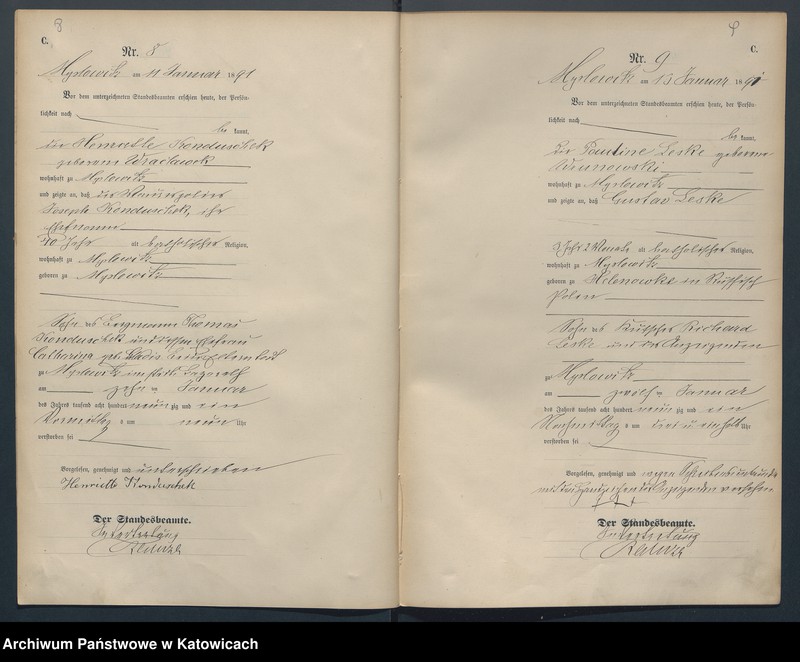 8
C.
Nr. 8
Myslowitz am 11 Januar 1891
Vor dem unterzeichneten Standesbeamten erschien heute, der Persön-
lichkeit nach
be kannt,
die Henriette Konduschek
geborene
wohnhaft zu Myslowitz
und zeigte an, daß der
Joseph Konduschek, ihr
Ehemann
40 Jahr alt katholischer Religion,
wohnhaft zu Myslowitz
geboren zu Myslowitz
Sohn des Bergmann Thomas
Konduschek und dessen Ehefrau
Catharina geb.
zu Myslowitz im städt. Lazareth
am zehn ten Januar
des Jahres tausend acht hundert neun zig und ein
Vormittag s um neun Uhr
verstorben sei
Vorgelesen, genehmigt und unterschrieben
Henriette Konduschek
Der Standesbeamte.
In Vertretung
9
C.
Nr. 9
Myslowitz am 13 Januar 1891
Vor dem unterzeichneten Standesbeamten erschien heute, der Persön-
lichkeit nach
be kannt,
die Pauline Leske geborene
wohnhaft zu Myslowitz
und zeigte an, daß Gustav Leske
2 Monate alt katholischer Religion,
wohnhaft zu Myslowitz
geboren zu in Russisch
Polen
Sohn des Kutscher Richard
Leske und der Anzeigenden
zu Myslowitz
am zwölf ten Januar
des Jahres tausend acht hundert neun zig und ein
Nachmittag s um drei u einhalb Uhr
verstorben sei
Vorgelesen, genehmigt und wegen Schreibensunkunde
mit den Handzeichen der Anzeigenden versehen
+++
Der Standesbeamte.
In Vertretung
Archiwum Państwowe w Katowicach